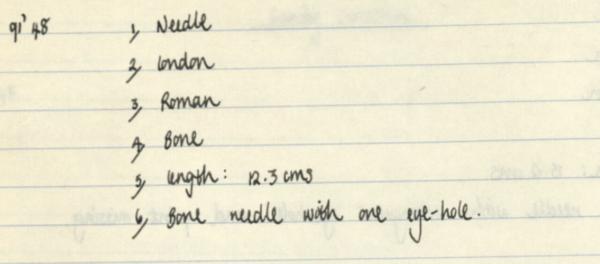 91'48
1, Needle
2, London
3, Roman
4, Bone
5, length: 12.3 cms
6, Bone needle with one eye-hole.